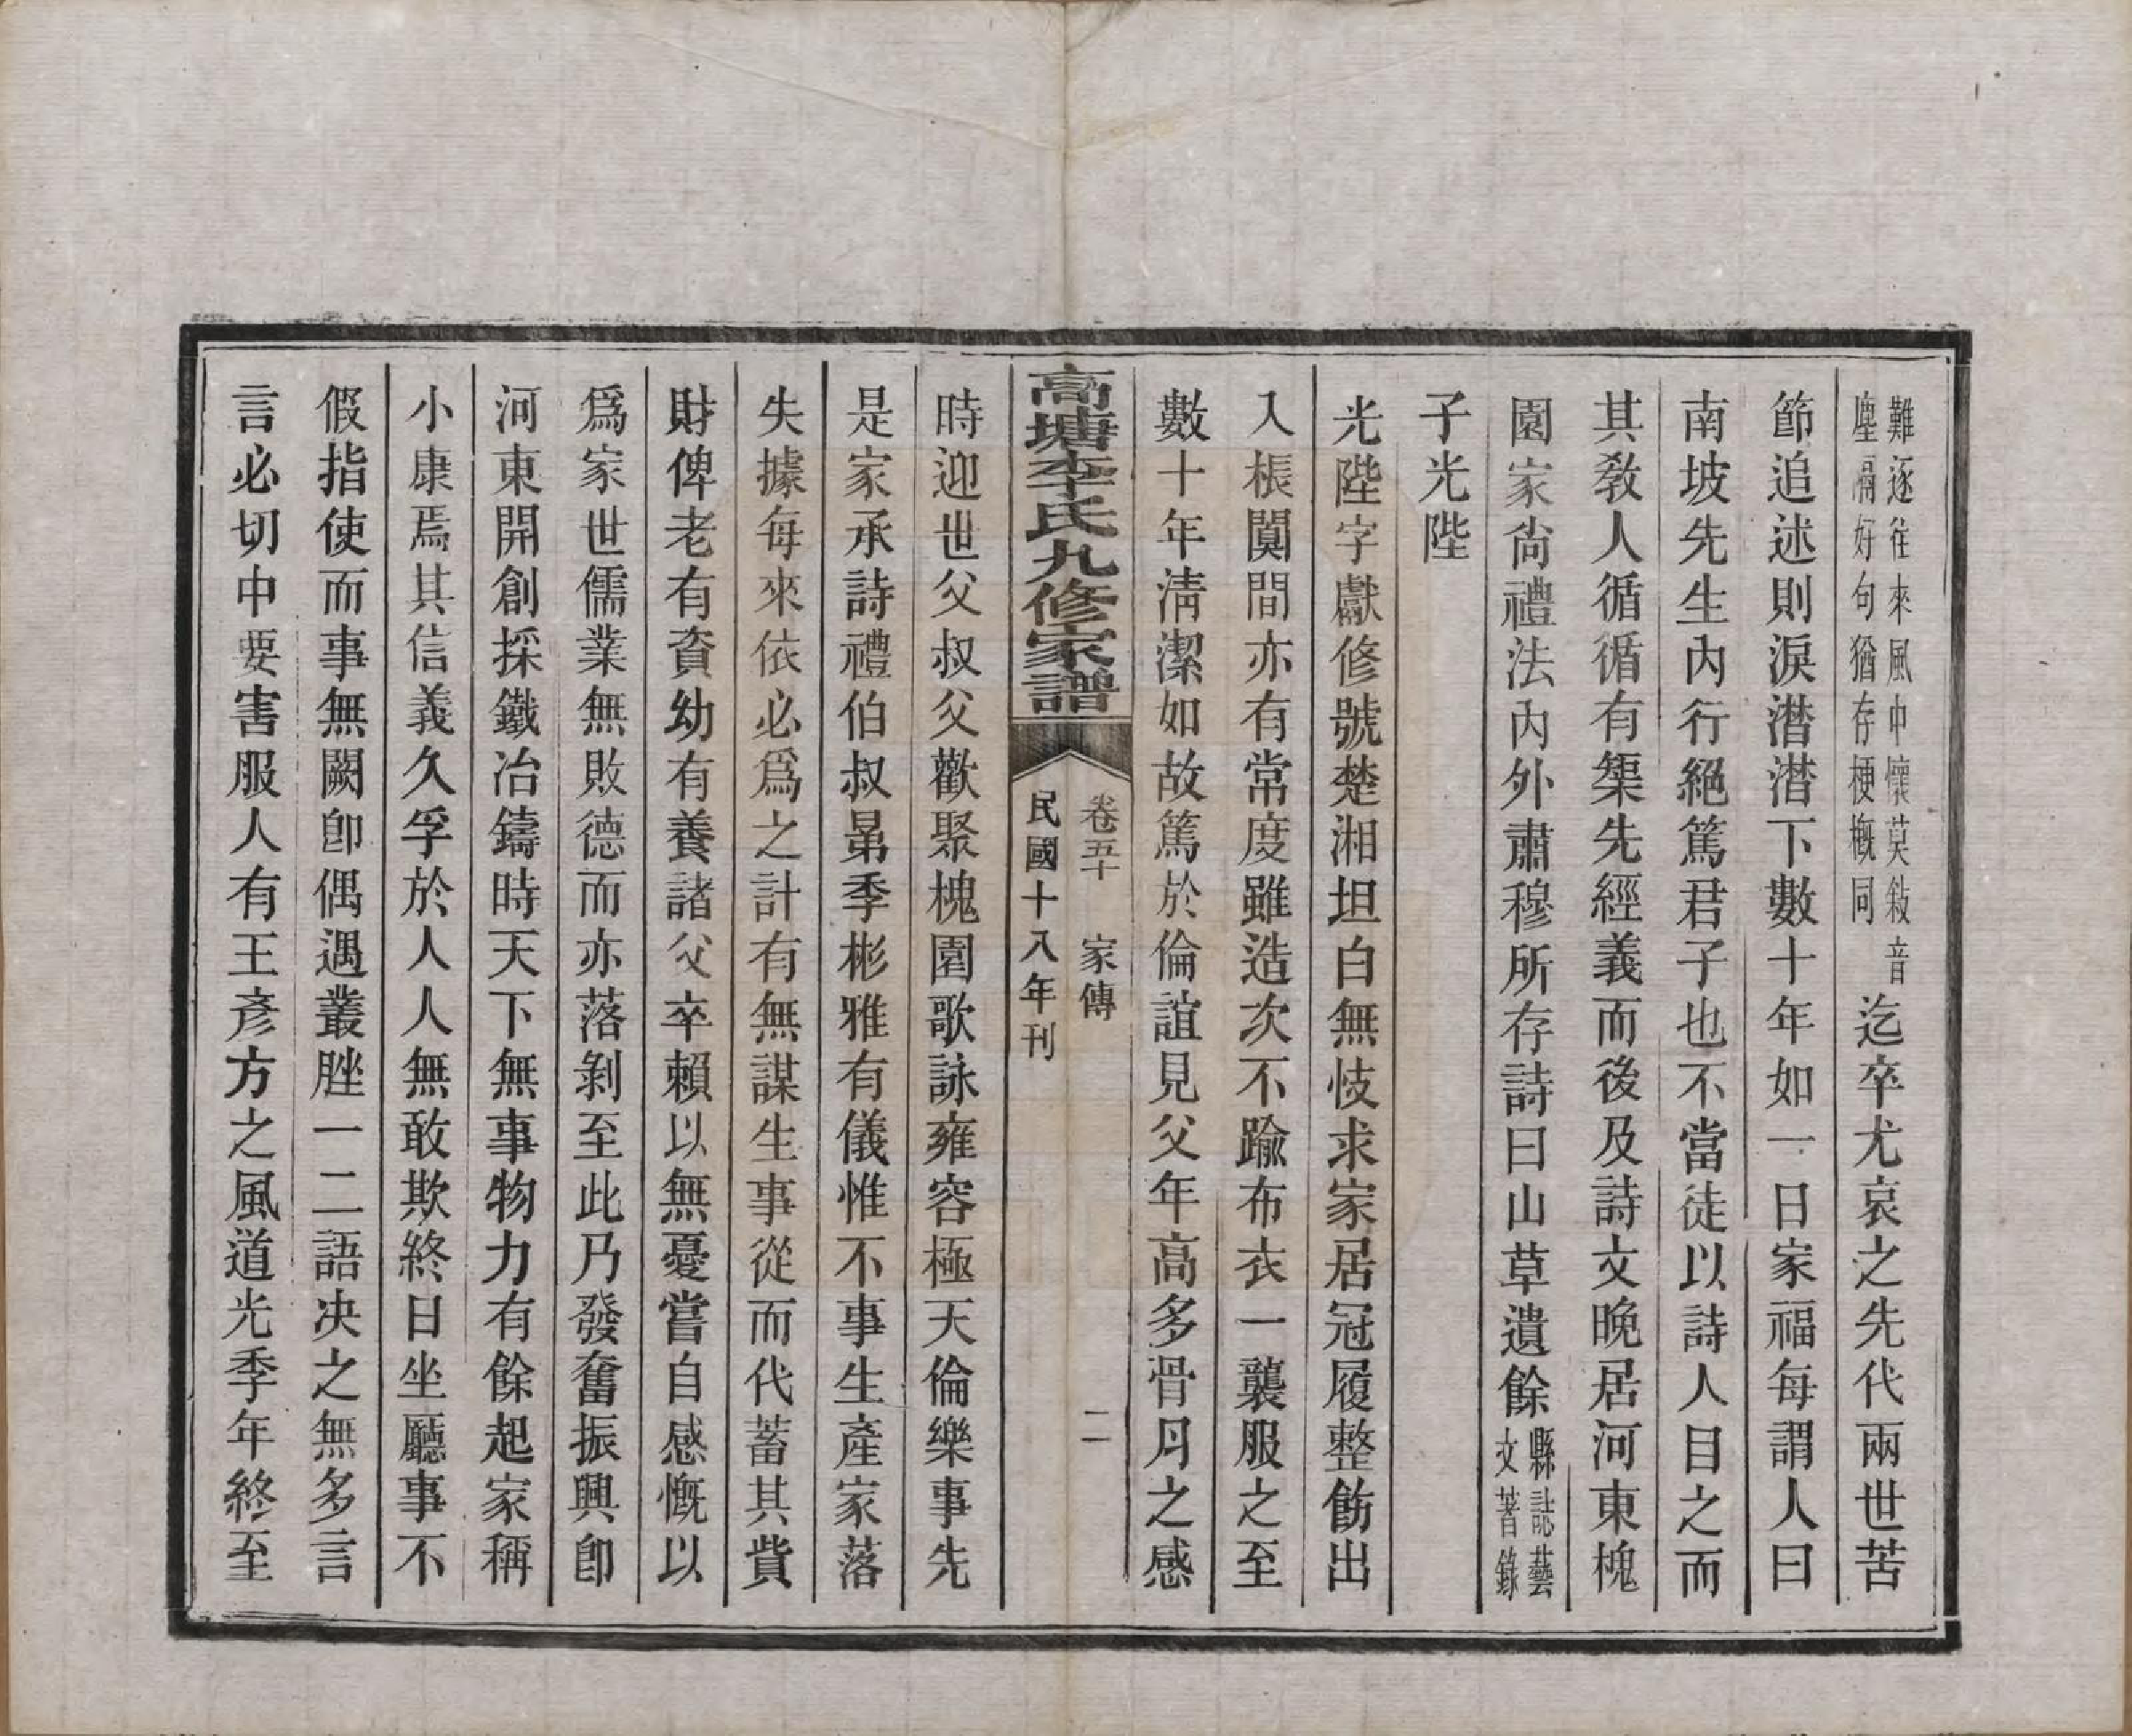 難逐往來風中懷莫敍音
塵隔好句猶存梗概同
迄卒尤哀之先代兩世苦
節追述則淚潸潸下數十年如一日家福每謂人曰
南坡先生內行絕篤君子也不當徒以詩人目之而
其教人循循有榘先經義而後及詩文晚居河東槐
園家尙禮法內外肅穆所存詩曰山草遺餘
縣誌藝
文著錄
子光陛
光陛字獻修號楚湘坦白無忮求家居冠履整飭出
入棖闑間亦有常度雖造次不踰布衣一襲服之至
數十年淸潔如故篤於倫誼見父年高多骨月之感
高塘李氏九修家譜
卷五十 家傳
二
民國十八年刊
時迎世父叔父歡聚槐園歌詠雍容極天倫樂事先
是家承詩禮伯叔㫒季彬雅有儀惟不事生產家落
失據每來依必爲之計有無謀生事從而代蓄其貲
財俾老有資幼有養諸父卒賴以無憂嘗自感慨以
爲家世儒業無敗德而亦落剝至此乃發奮振興卽
河東開創採鐵冶鑄時天下無事物力有餘起家稱
小康焉其信義久孚於人人無敢欺終日坐廳事不
假指使而事無闕卽偶遇叢脞一二語决之無多言
言必切中要害服人有王彥方之風道光季年終至